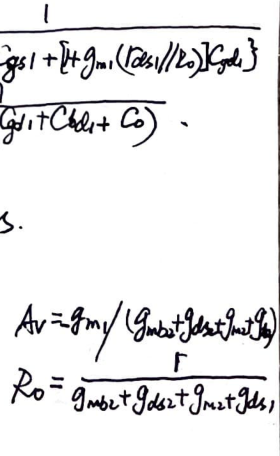 1
Cgs1+[1+gm1(rds1//Ro)]Cgd1}
(Cgd1+Cbd1+Co) .
s.
Av=-gm1/(gmb2+gds2+gm2+gds1)
Ro = 1/(gmb2+gds2+gm2+gds1